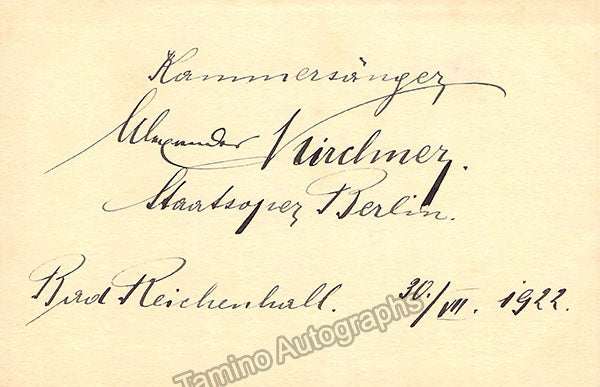 Kammersänger
Alexander Kirchner.
Staatsoper Berlin.
Bad Reichenhall. 30./VII. 1922.
Tamino Autographs